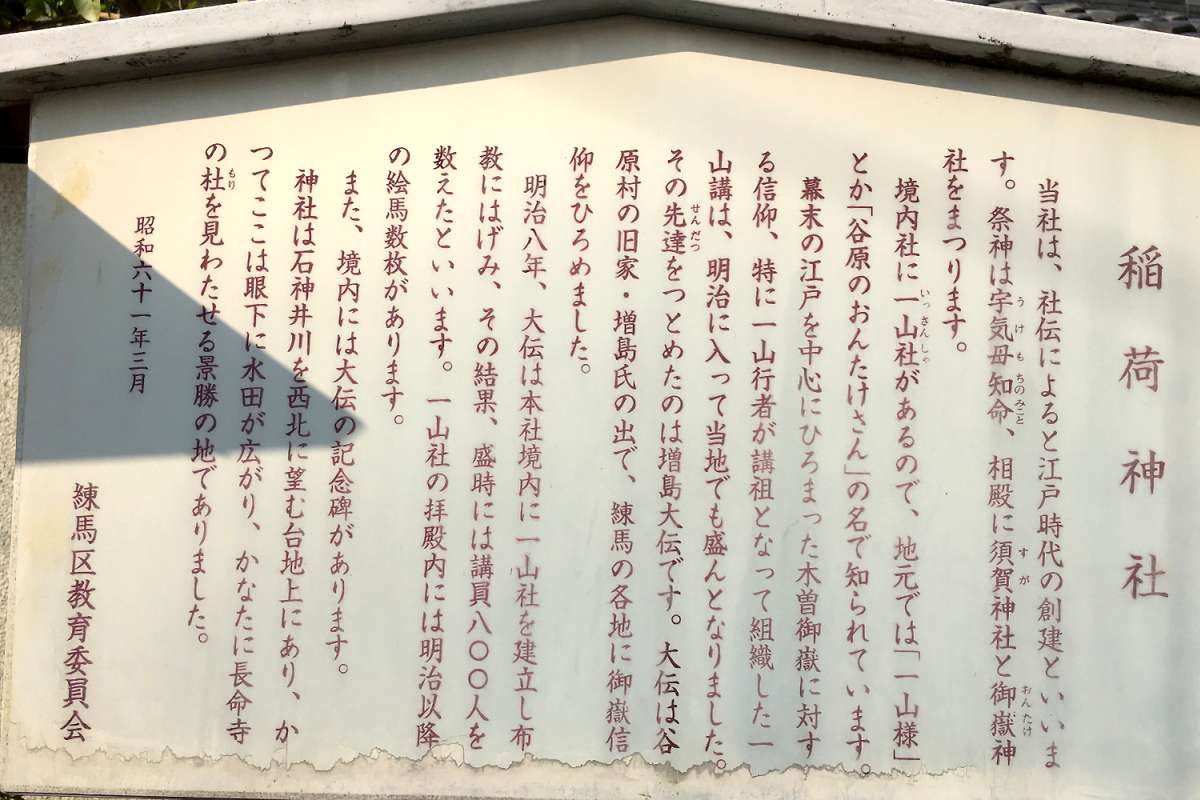 稲荷神社
当社は、社伝によると江戸時代の創建といいま
す。祭神は宇気母知命、相殿に須賀神社と御嶽神
うけもちのみこと
すが
おんたけ
社をまつります。
境内社に一山社があるので、地元では「一山様」
いっさんしゃ
とか「谷原のおんたけさん」の名で知られています。
幕末の江戸を中心にひろまった木曽御嶽に対す
る信仰、特に一山行者が講祖となって組織した一
山講は、明治に入って当地でも盛んとなりました。
その先達をつとめたのは増島大伝です。大伝は谷
せんだつ
原村の旧家・増島氏の出で、練馬の各地に御嶽信
仰をひろめました。
明治八年、大伝は本社境内に一山社を建立し布
教にはげみ、その結果、盛時には講員八〇〇人を
数えたといいます。一山社の拝殿内には明治以降
の絵馬数枚があります。
また、境内には大伝の記念碑があります。
神社は石神井川を西北に望む台地上にあり、か
つてここは眼下に水田が広がり、かなたに長命寺
の杜を見わたせる景勝の地でありました。
もり
昭和六十一年三月
練馬区教育委員会